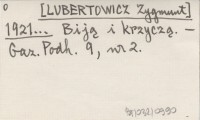 [LUBERTOWICZ Zygmunt]
1921... Biją i krzyczą. –
Gaz. Podh. 9, nr 2.